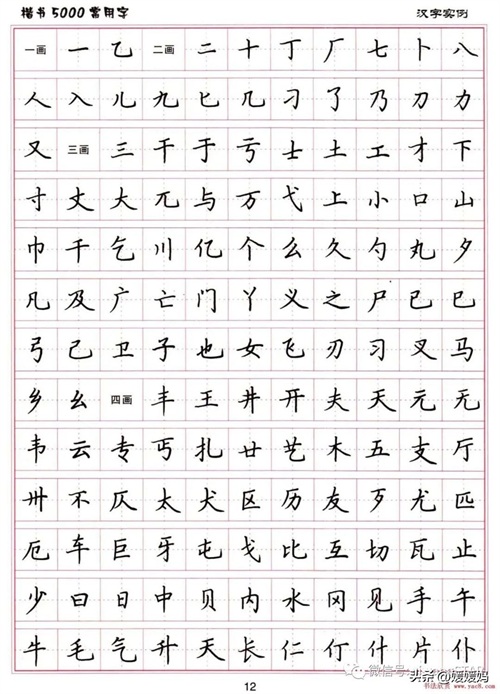 楷书5000常用字 汉字实例
一画 一 乙 二画 二 十 丁 厂 七 卜 八
人 入 儿 九 匕 几 刁 了 乃 刀 力
又 三画 三 干 于 亏 士 土 工 才 下
寸 丈 大 兀 与 万 弋 上 小 口 山
巾 千 乞 川 亿 个 么 久 勺 丸 夕
凡 及 广 亡 门 丫 义 之 尸 已 巳
弓 己 卫 子 也 女 飞 刃 习 叉 马
乡 幺 四画 丰 王 井 开 夫 天 元 无
韦 云 专 丐 扎 廿 艺 木 五 支 厅
卅 不 仄 太 犬 区 历 友 歹 尤 匹
厄 车 巨 牙 屯 戈 比 互 切 瓦 止
少 曰 日 中 贝 内 水 冈 见 手 午
牛 毛 气 升 夭 长 仁 仃 什 片 仆
微信号
头条@媛媛妈
12
书法欣赏 www.yac8.com